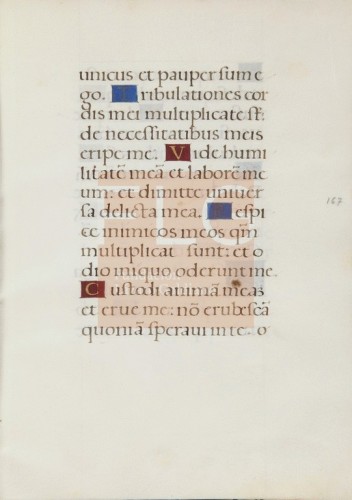 unicus et pauper sum e
go. Tribulationes cor
dis mei multiplicate st̄:
de necessitatibus meis
eripe me. Vide humi
litatē meā et laborē me
um: et dimitte univer
sa delicta mea. Respi
ce inimicos meos qm̄
multiplicati sunt: et o
dio iniquo oderunt me.
Custodi animā meā
et erue me: nō erubescā
quoniā speravi in te. o
167